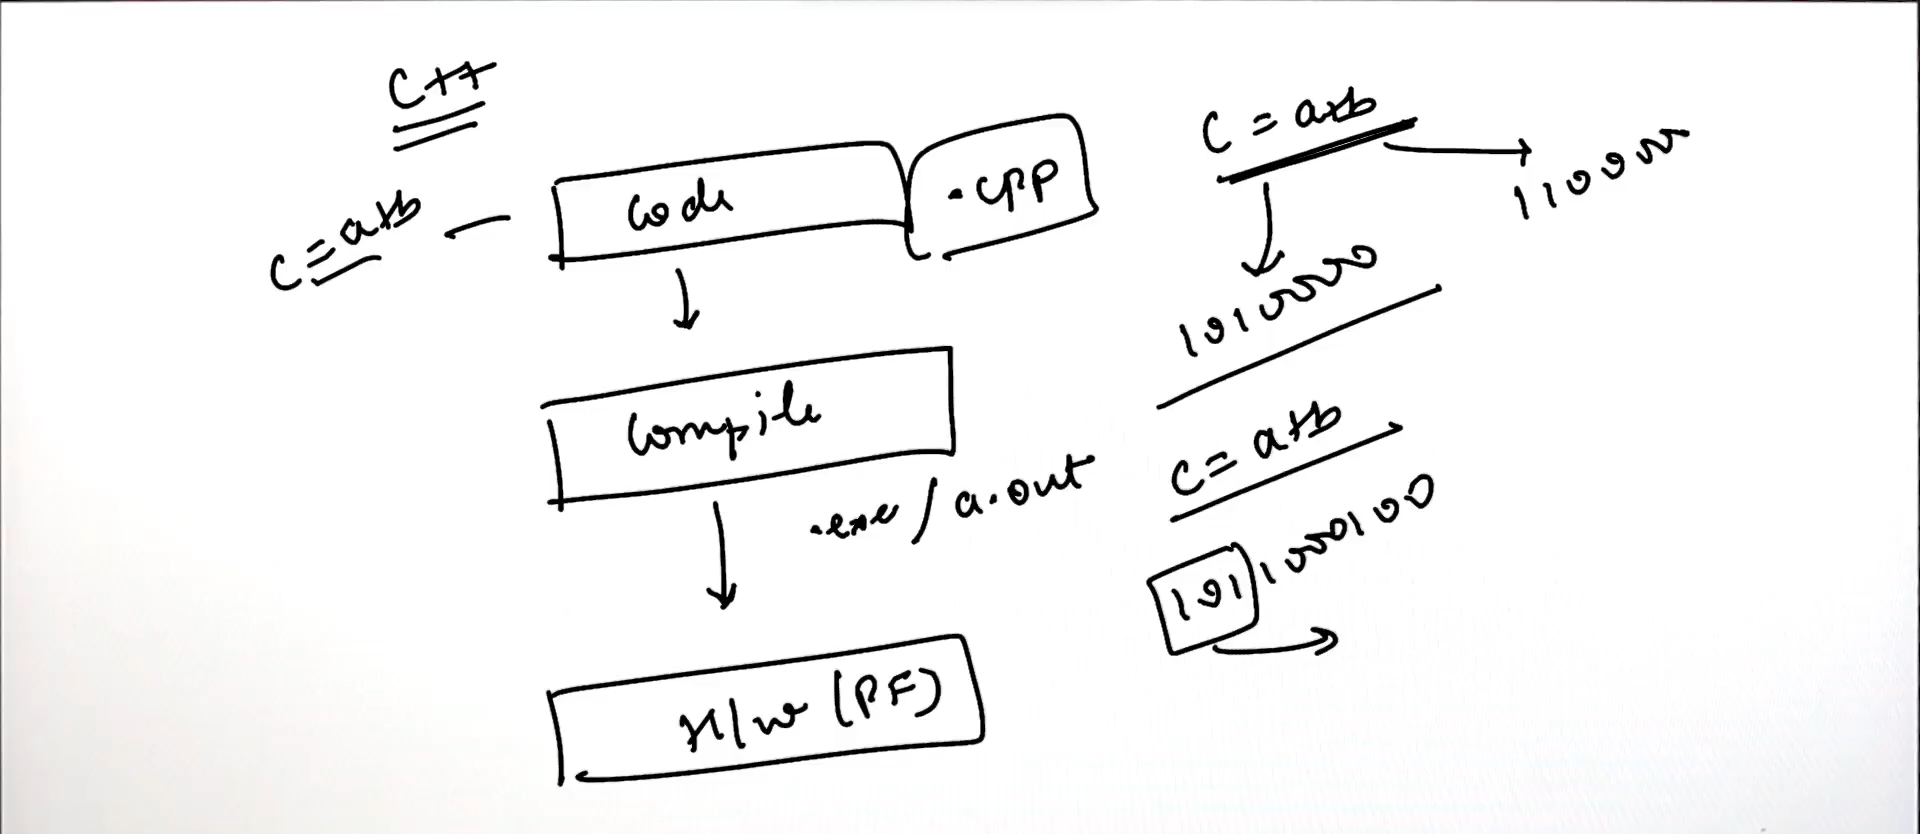 C++
C = a+b
Code
.cpp
Compile
.exe / a.out
H/w (PF)
C = a+b
110000
1010000
C = a+b
1011000100